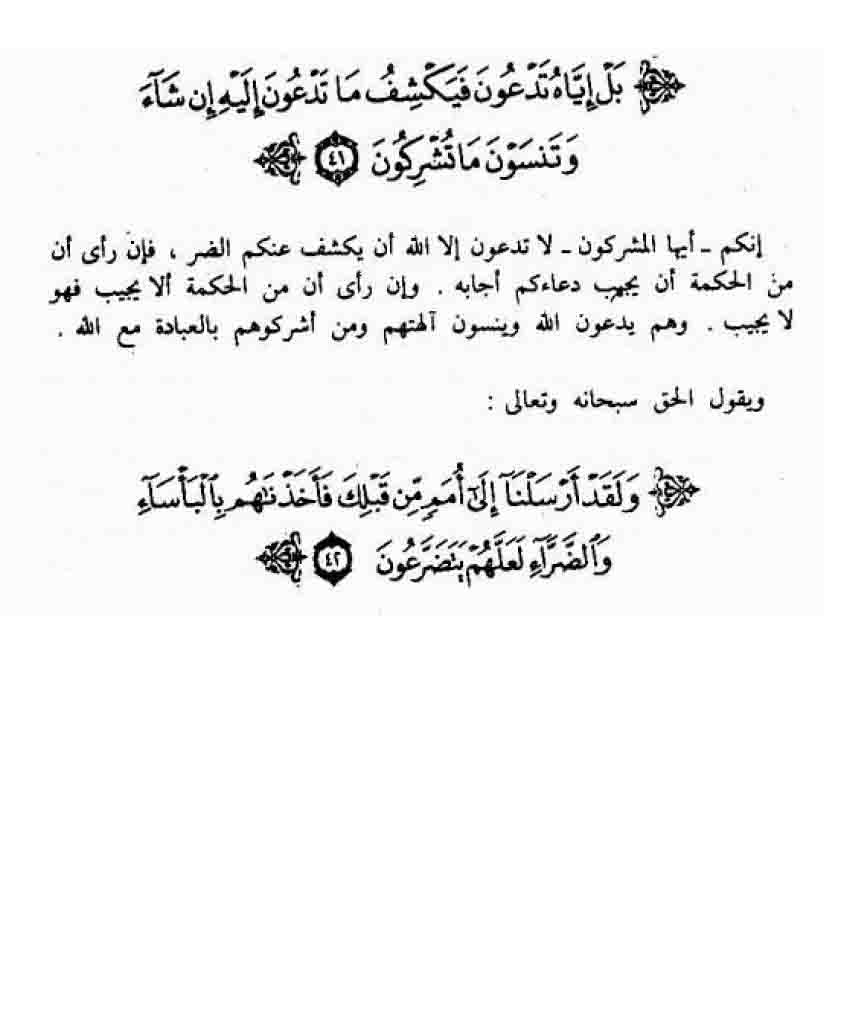 بَلْ إِيَّاهُ تَدْعُونَ فَيَكْشِفُ مَا تَدْعُونَ إِلَيْهِ إِن شَآءَ
وَتَنسَوْنَ مَا تُشْرِكُونَ ٤١
إنكم ـ أيها المشركون ـ لا تدعون إلا الله أن يكشف عنكم الضر ، فإن رأى أن
من الحكمة أن يجيب دعاءكم أجابه . وإن رأى أن من الحكمة ألا يجيب فهو
لا يجيب . وهم يدعون الله وينسون آلهتهم ومن أشركوهم بالعبادة مع الله .
ويقول الحق سبحانه وتعالى :
وَلَقَدْ أَرْسَلْنَآ إِلَىٰٓ أُمَمٍ مِّن قَبْلِكَ فَأَخَذْنَٰهُم بِالْبَأْسَآءِ
وَالضَّرَّآءِ لَعَلَّهُمْ يَتَضَرَّعُونَ ٤٢